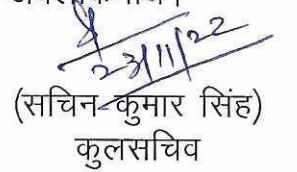 23/11/22
(सचिन कुमार सिंह)
कुलसचिव